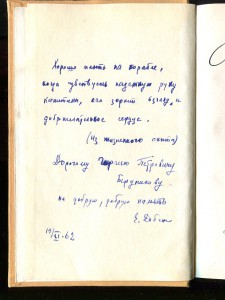 Хорошо плыть на корабле,
когда чувствуешь надежную руку
капитана, его зоркий взгляд и
доброжелательное сердце.
(Из жизненного опыта)
Дорогому Георгию Петровичу
на добрую, добрую память
Е.
19/XI-62